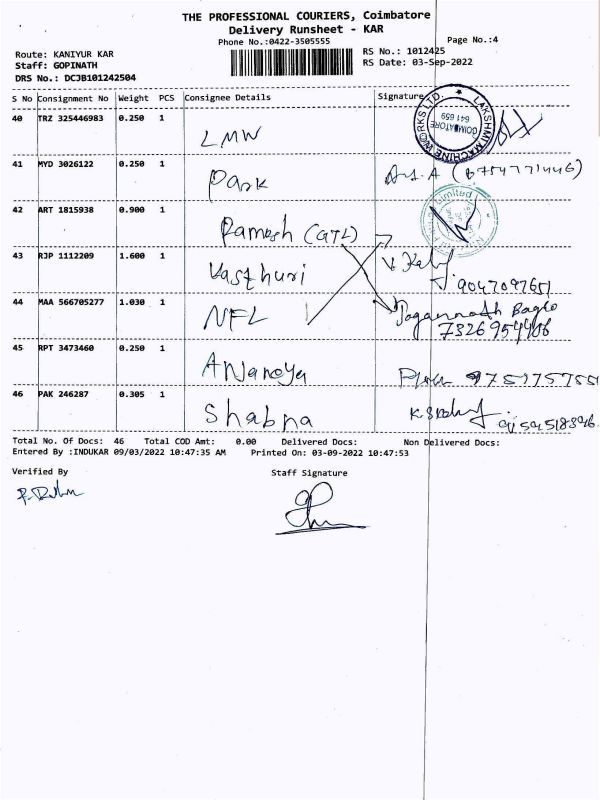 THE PROFESSIONAL COURIERS, Coimbatore
Delivery Runsheet - KAR
Phone No.:0422-3505555 Page No.:4
Route: KANIYUR KAR RS No.: 1012425
Staff: GOPINATH RS Date: 03-Sep-2022
DRS No.: DCJB101242504
S No Consignment No Weight PCS Consignee Details Signature
LAKSHMI MACHINE WORKS LTD.
COIMBATORE
641 659
40 TRZ 325446983 0.250 1 LMW
41 MYD 3026122 0.250 1 Park
42 ART 1815938 0.900 1 Ramesh (GTL) Limited
43 RJP 1112209 1.600 1 Kasthuri 9047097651
44 MAA 566705277 1.030 1 NFL Jagannath
45 RPT 3473460 0.250 1 Anjaneya
46 PAK 246287 0.305 1 Shabna
Total No. Of Docs: 46 Total COD Amt: 0.00 Delivered Docs: Non Delivered Docs:
Entered By :INDUKAR 09/03/2022 10:47:35 AM Printed On: 03-09-2022 10:47:53
Verified By Staff Signature